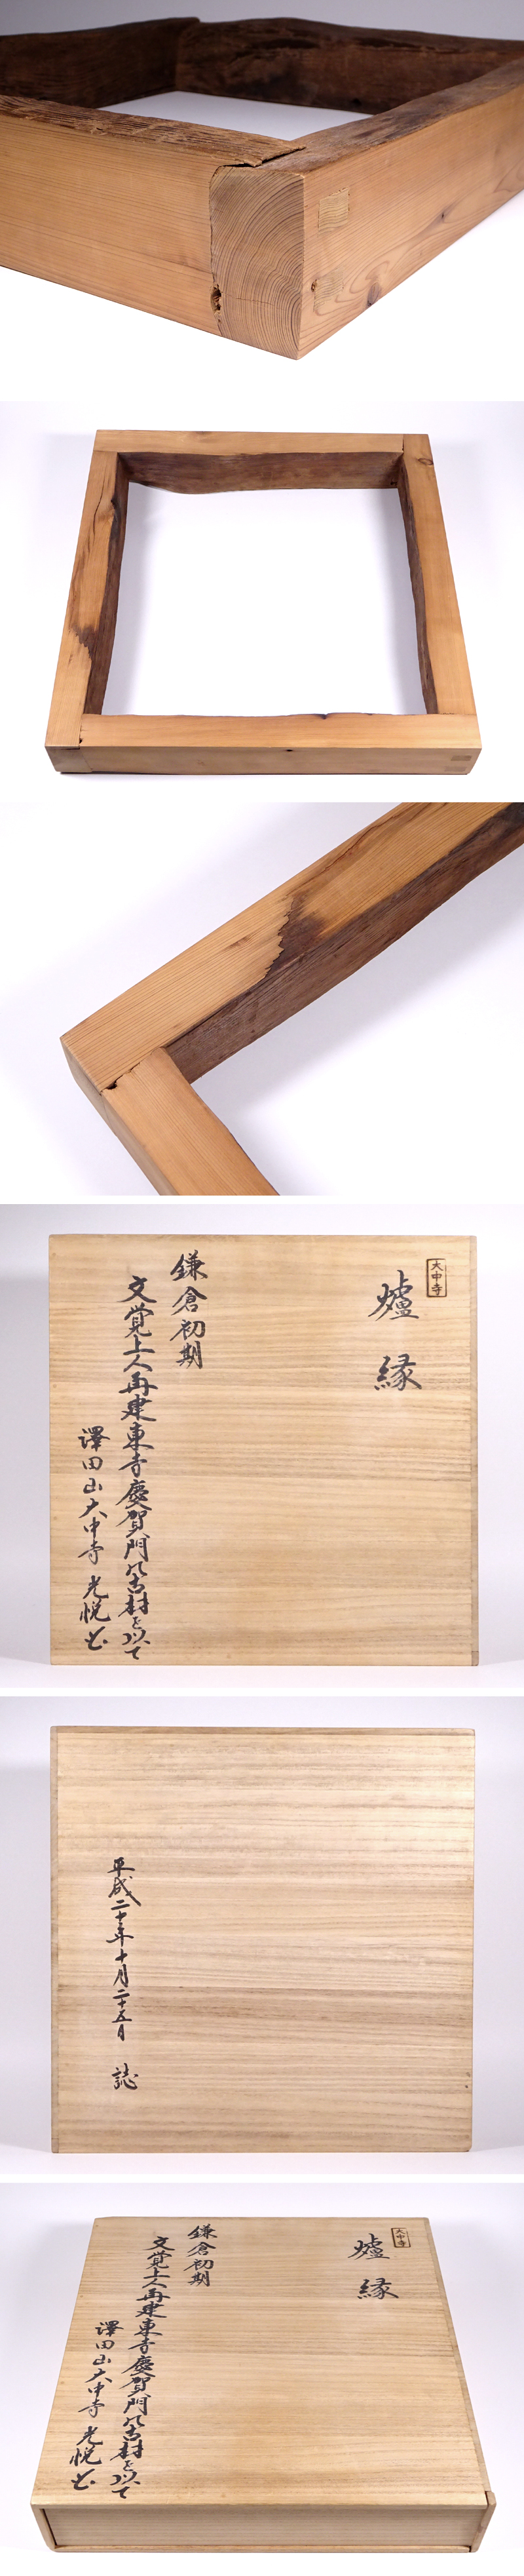 大中寺
爐縁
鎌倉初期
文覚上人再建東寺慶賀門の古材を以て
澤田山大中寺 光悦
平成二十年十月二十五日 誌
大中寺
爐縁
鎌倉初期
文覚上人再建東寺慶賀門の古材を以て
澤田山大中寺 光悦